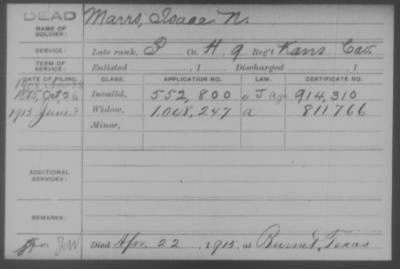 DEAD
NAME OF SOLDIER: Marrs, Isaac N.
SERVICE: Late rank, P Co. H, 9 Reg't Kans Cav.
TERM OF SERVICE: Enlisted , 1 Discharged , 1
DATE OF FILING. CLASS. APPLICATION NO. LAW. CERTIFICATE NO.
1885, Oct 26 Invalid, 552,800 J 914,310
1915 June 7 Widow, 1.048,247 a 811766
Minor,
ADDITIONAL SERVICES:
REMARKS:
Died Apr. 22, 1915, at Burnet, Texas